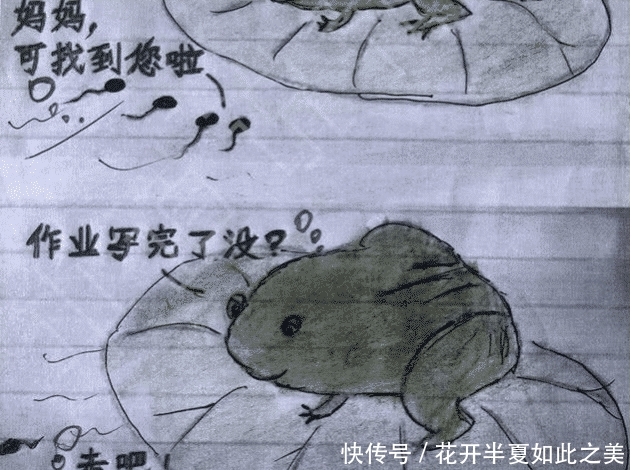 妈妈，
可找到您啦
作业写完了没？
去吧！
快传号 / 花开半夏如此之美